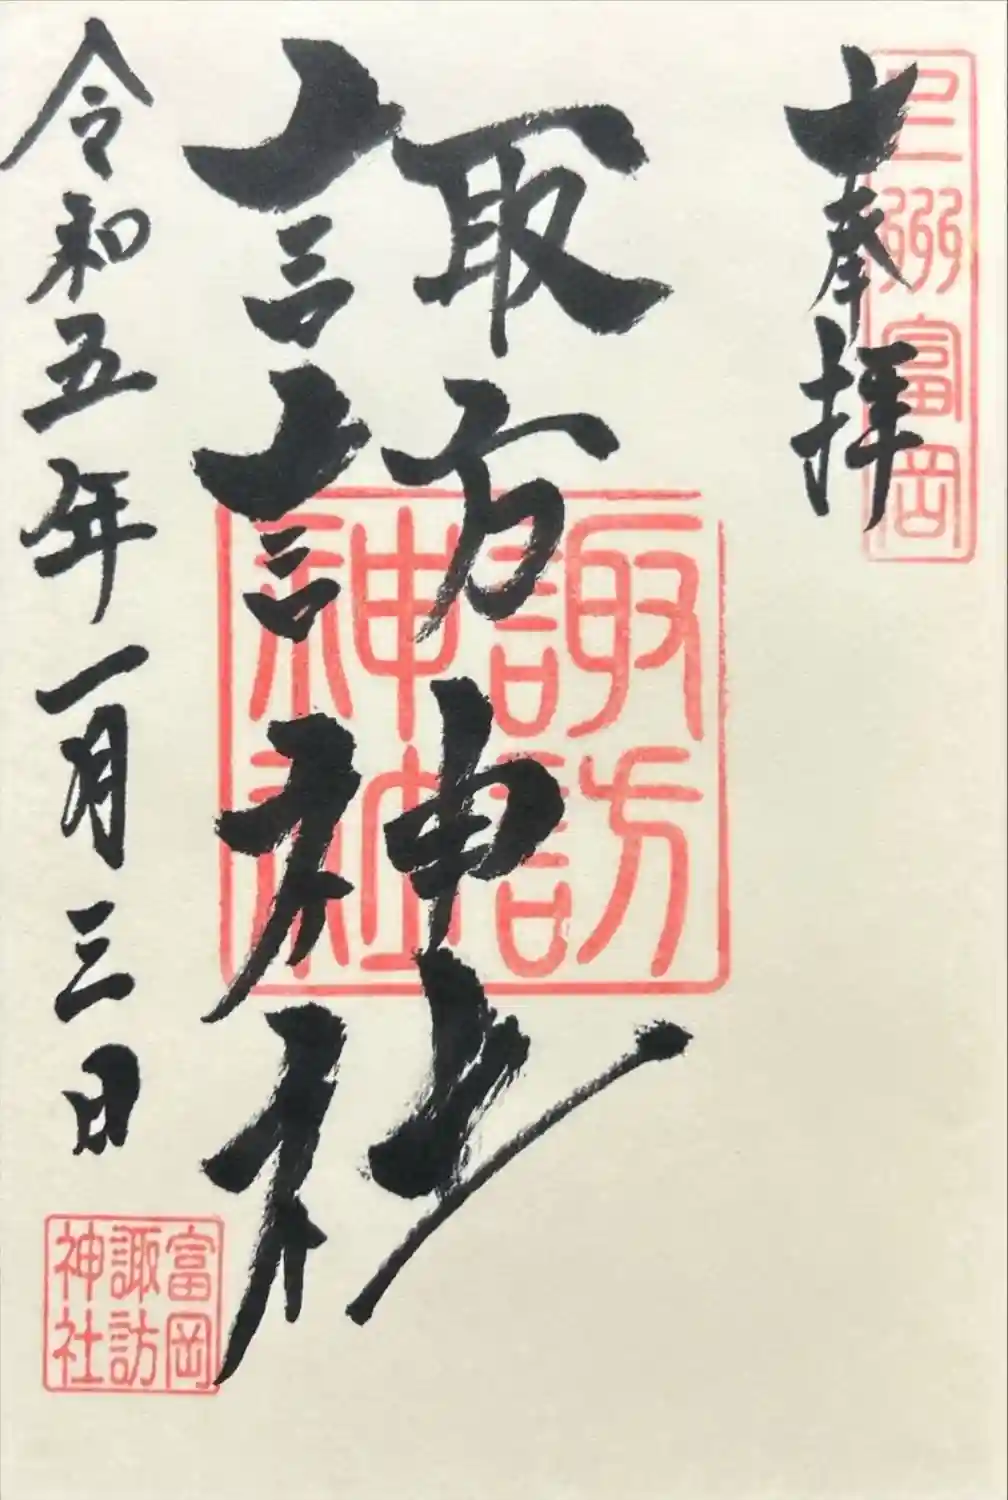 奉拝
州富岡
諏訪神社
諏訪
神社
令和五年一月三日
富岡
諏訪
神社